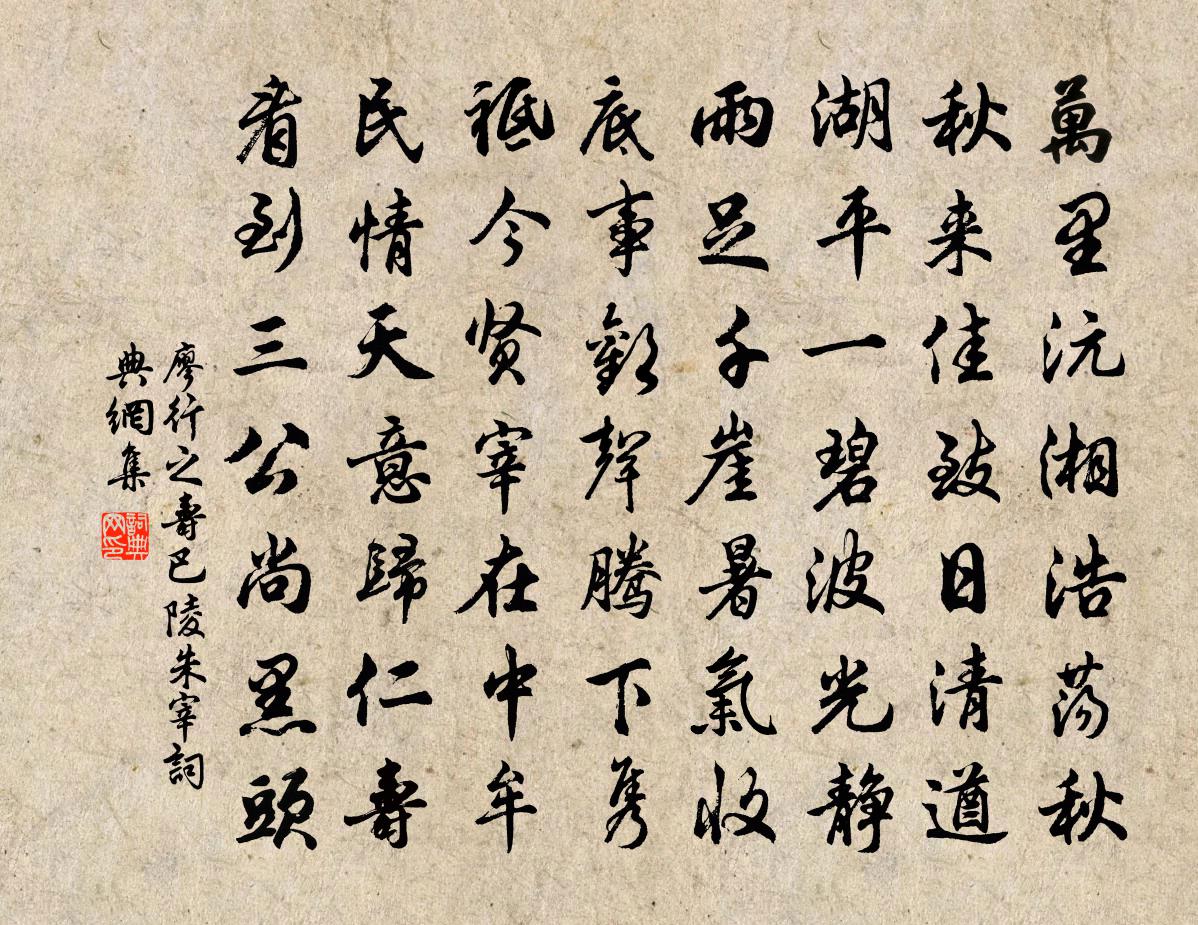 萬里沅湘浩荡秋
秋来佳致日清遒
湖平一碧波光静
雨足千崖暑氣收
底事歡聲腾下隽
祗今贤宰在中牟
民情天意歸仁壽
看到三公尚黑頭
廖行之壽巴陵朱宰詞
典網集
詞典
网印